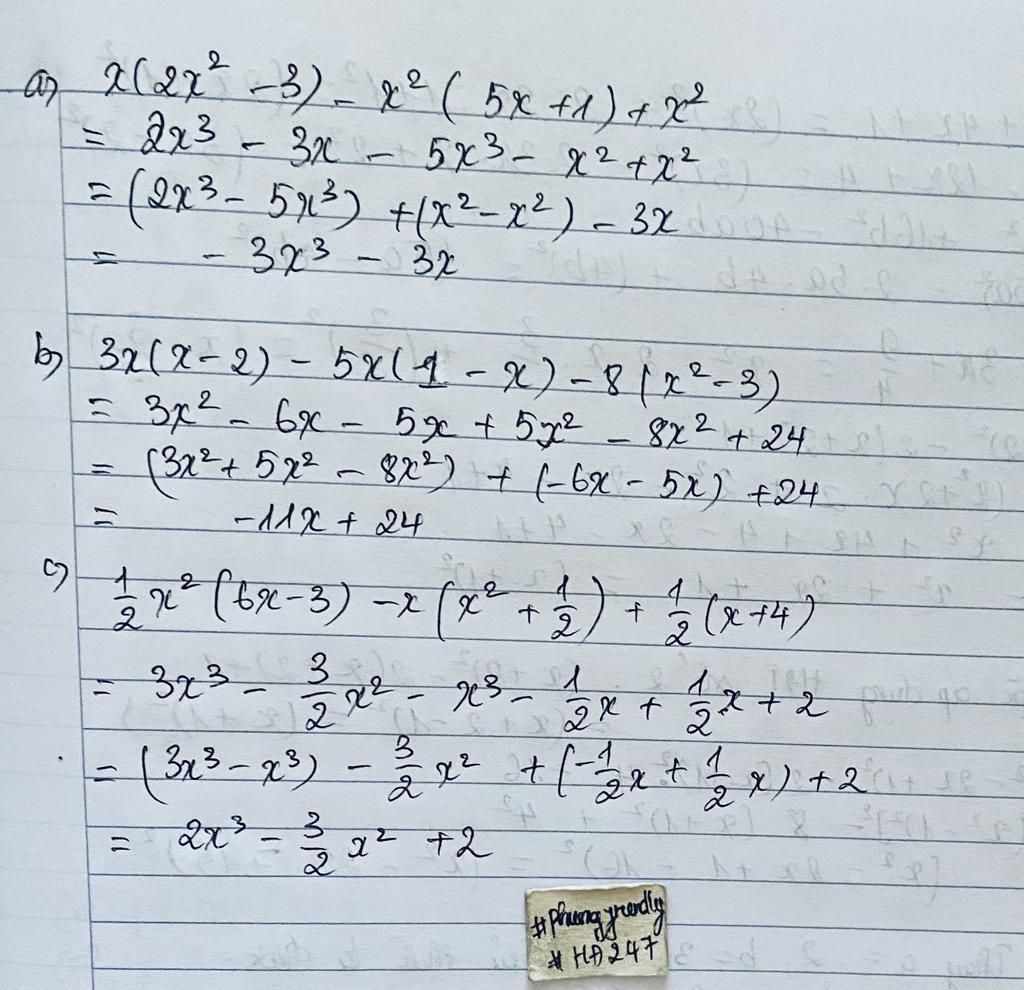 a) x(2x² - 3) - x² ( 5x + 1) + x²
= 2x³ - 3x - 5x³ - x² + x²
= (2x³ - 5x³) + (x² - x²) - 3x
= - 3x³ - 3x
b) 3x(x - 2) - 5x(1 - x) - 8(x² - 3)
= 3x² - 6x - 5x + 5x² - 8x² + 24
= (3x² + 5x² - 8x²) + (-6x - 5x) + 24
= -11x + 24
c) 1/2 x² (6x - 3) - x (x² + 1/2) + 1/2 (x + 4)
= 3x³ - 3/2 x² - x³ - 1/2 x + 1/2 x + 2
= (3x³ - x³) - 3/2 x² + (-1/2 x + 1/2 x) + 2
= 2x³ - 3/2 x² + 2
# HA247